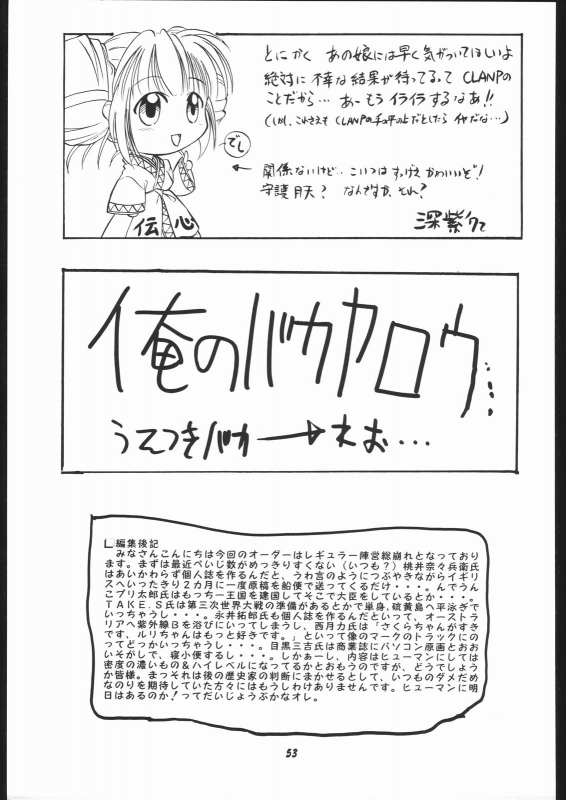 とにかく あの娘には早く気がついてほしいよ
絶対に 不幸な結果が待ってるって CLANPの
ことだから… あーもう イライラするなあ!!
(しかし、これさえも CLANPの手の平の上だとしたら イヤだな…)
でし
← 関係ないけど… こいつはすっげえ かわいいぞ!
守護月天? なんですか、それ?
伝心
深紫
俺のバカヤロウ…
うえつきバカ→えお…
編集後記
みなさんこんにちは今回のオーダーはレギュラー陣営総崩れとなっており
ます。まずは最近ぺいじ数がめっきりすくない(いつも?)桃井奈々兵衛氏
はあいかわらず個人誌を作るんだと、うわ言のようにつぶやきながらイギリ
スへいったきり2カ月に一度原稿を船便で送ってくるだけ・・・。んでうん
こブリ太郎氏はもっち一王国を建国してそこで大臣をしているとか・・・。
TAKE.S氏は第三次世界大戦の準備があるとかで単身、硫黄島へ平泳ぎで
いっちゃうし・・・。永井拓郎氏も個人誌を作るんだといって、オーストラ
リアへ紫外線Bを浴びにいってしまうし、西月力氏は「さくらちゃんがすき
です、ルリちゃんはもっと好きです。」といって像のマークのトラックにの
ってどっかいっちゃう・・・。目黒三吉氏は商業誌にパソコン原画とおおお
いそがしで、寝小便するし・・・。しかぁーし、内容はヒューマンにしては
密度の濃いもの&ハイレベルになってるかとおもうのですが、どうでしょう
か皆様。まっそれは後の歴史家の判断にまかせるとして、いつものダメだめ
なのりを期待していた方々にはもうしわけありませんです。ヒューマンに明
日はあるのか!ってだいじょうぶかなオレ。
53